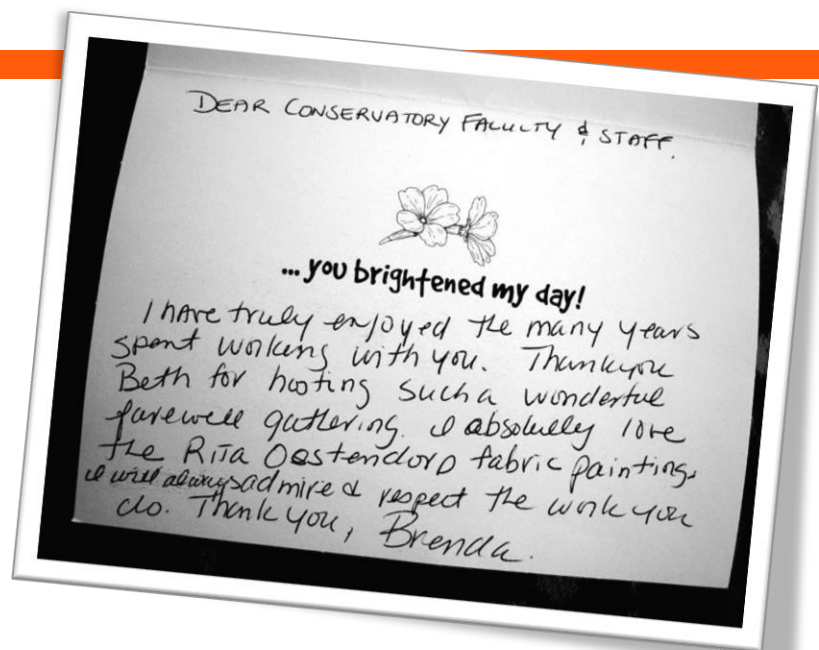 DEAR CONSERVATORY FACULTY & STAFF.
... you brightened my day!
I have truly enjoyed the many years
spent working with you. Thankyou
Beth for hosting such a wonderful
farewell gathering. I absolutely love
the RITA Oostendorp fabric painting.
I will always admire & respect the work you
do. Thank you, Brenda.